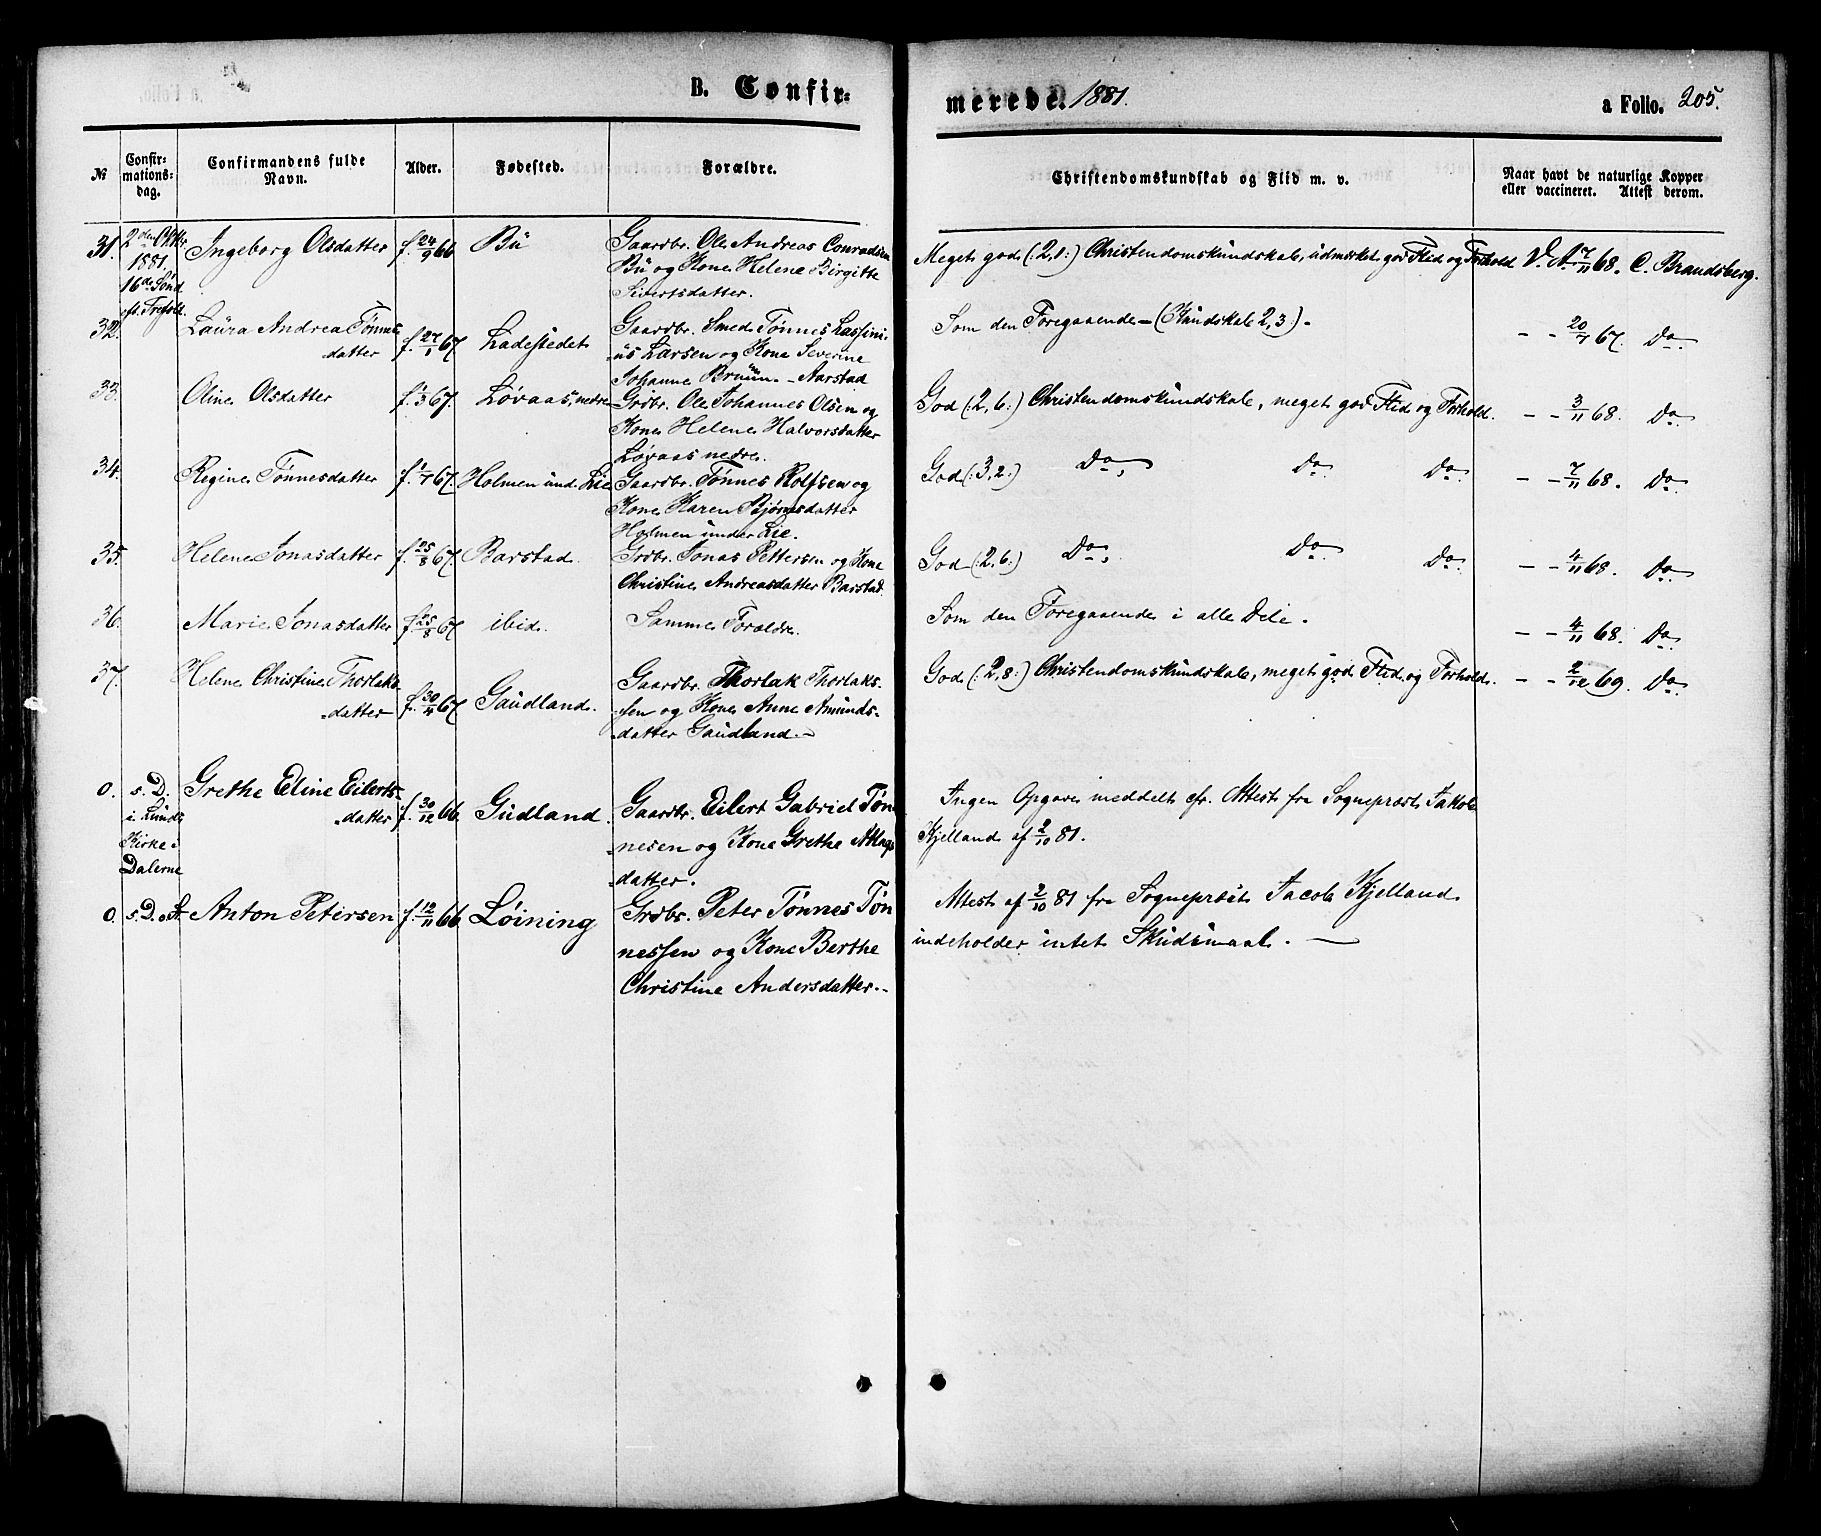 B. Confir-
merede. 1881.
a Folio. 205.
№
Confir-
mations-
dag.
Confirmandens fulde
Navn.
Alder.
Fødested.
Forældre.
Christendomskundskab og Flid m. v.
Naar havt de naturlige Kopper
eller vaccineret. Attest derom.
31. 2den Oktbr. 1881. 16de Sønd. eft. Trefold. Ingeborg Olsdatter f. 24/9 66 Bü
Gaardbr. Ole Andreas Conradsen
Bü og Kone Helene Birgitte
Sivertsdatter.
Meget god (: 2,1 :) Christendomskundskab, udmærket god Flid og Forhold V. A. 7/11 68. C. Brandsberg.
32. Laura Andrea Tønnes-
datter f. 27/1 67. Ladestedet
Gaardbr. Smed Tønnes Lassini-
us Larsen og Kone Severine
Johanne Bruun - Aarstad
Som den Foregaaende - (Kundskab 2,3). - - 20/7 67. Do.
33. Oline Olsdatter f. 1/3 67. Løvaas, nedre
Grdbr. Ole Johannes Olsen og
Kone Helene Halvorsdatter
Løvaas nedre.
God (: 2,6 :) Christendomskundskab, meget god Flid og Forhold. - - 3/11 68. Do.
34. Regine Tønnesdatter f. 1/7 67. Holmen und. Lie
Gaardbr. Tønnes Rolfsen og
Kone Karen Bjørnsdatter
Holmen under Lie.
God (: 3,2 :) Do, Do Do. - - 7/11 68. Do.
35. Helene Jonasdatter f. 25/8 67. Barstad.
Grdbr. Jonas Pettersen og Kone
Christine Andreasdatter Barstad.
God (: 2,6 :) Do, Do. Do. - - 4/11 68. Do.
36. Marie Jonasdatter f. 25/8 67 ibid.
Samme Forældre.
Som den Foregaaende i alle Dele. - - 4/11 68. Do.
37. Helene Christine Thorlaks-
datter f. 30/4 67 Gaudland.
Gaardbr. Thorlak Thorlaks-
sen og Kone Anne Amunds-
datter Gaudland. -
God (: 2,8 :) Christendomskundskab, meget god Flid og Forhold. - - 2/12 69. Do.
0. s. D. i Lunds Kirke i Dalerne Grethe Eline Eilerts-
datter f. 30/12 66. Gudland.
Gaardbr. Eilert Gabriel Tøn-
nesen og Kone Grethe Atlags-
datter.
Ingen Opgave meddelt cfr. Attest fra Sognepræst Jakob
Kjelland af 2/10 81.
0. s. D. & St. Anton Petersen f. 12/11 66. Løining
Grdbr. Peter Tønnes Tøn
nessen og Kone Berthe
Christine Andersdatter. -
Attest af 2/10 81 fra Sognepræst Jacob Kjelland
indeholder intet Skudsmaal. -